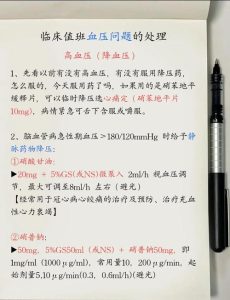 临床值班血压问题的处理
高血压（降血压）
1、先看以前有没有高血压，有没有服用降压药，
怎么服的，今天服用药了吗，如果用的是硝苯地平
缓释片，可以临时降压选心痛定（硝苯地平片
10mg），病情紧急可舌下含服或嚼服。
2、脑血管病急性期血压＞180/120mmHg 时给予静
脉药物降压:
①硝酸甘油:
▶20mg + 5%GS(或NS)微泵入 2ml/h 视血压调
节，最大可调至8ml/h 左右（避光）
【经常用于冠心病心绞痛的治疗及预防、治疗充血
性心力衰竭】
②硝普钠:
▶50mg，5%GS50ml（或NS）+ 硝普钠50mg，即
1mg/ml（1000μg/ml），常用量10，200μg/min，起
始剂量5,10μg/min(0.3，0.6ml/h)(避光)